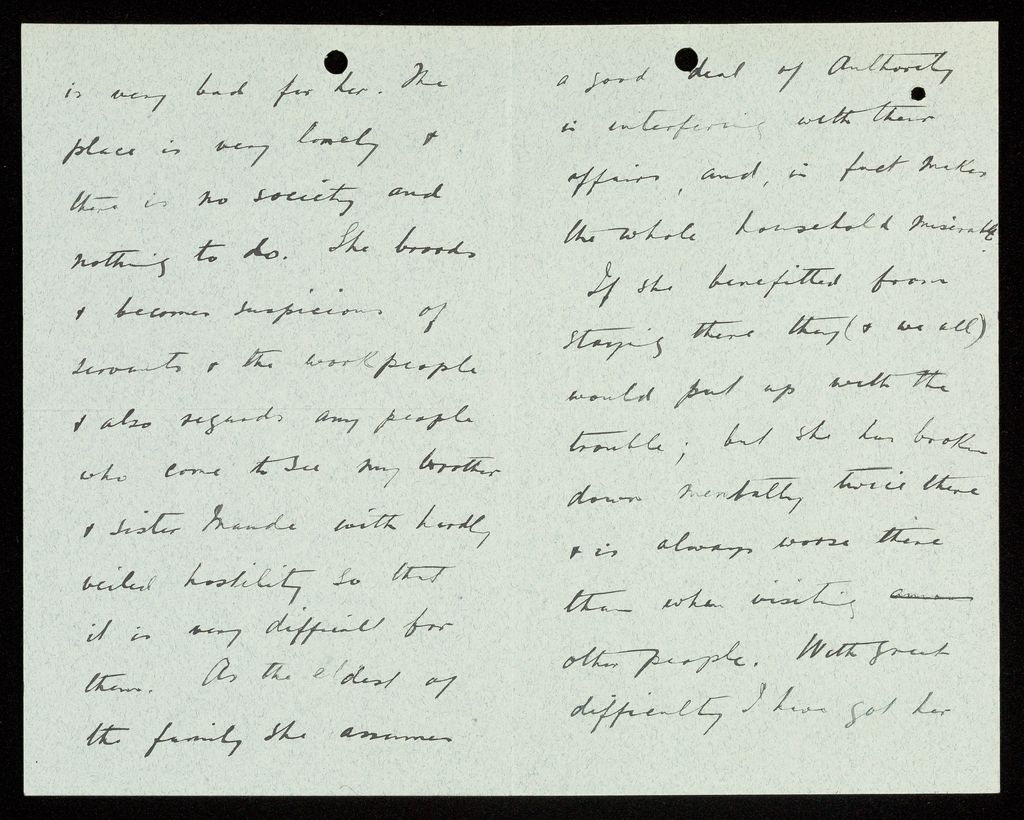 is very bad for her. The
place is very lonely &
there is no society and
nothing to do. She broods
& becomes suspicious of
servants & the workpeople
& also regards any people
who come to see my brother
& sister Maude with hardly
veiled hostility so that
it is very difficult for
them. As the eldest of
the family she assumes
a good deal of Authority
in interfering with their
affairs, and, in fact makes
the whole household miserable.
If she benefitted from
staying there they (& we all)
would put up with the
trouble; but she has broken
down mentally twice there
& is always worse there
than when visiting
other people. With great
difficulty I have got her